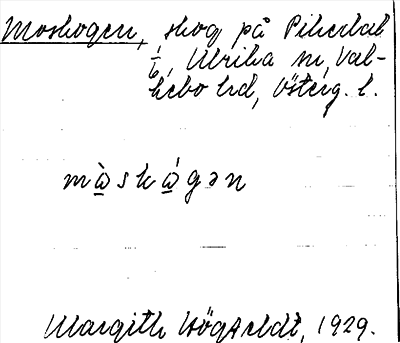 Moskogen, skog på Pikerbab
1/6, Ulrika sn, Val-
kebo hd, Österg. l.
mò̲skó̲gən
Margith Högfeldt, 1929.